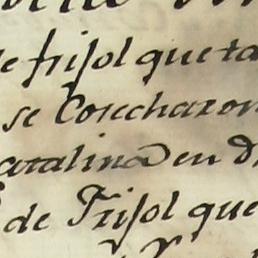 de frisol que ta
se Cosecharon
atalina en d
de Frisol que